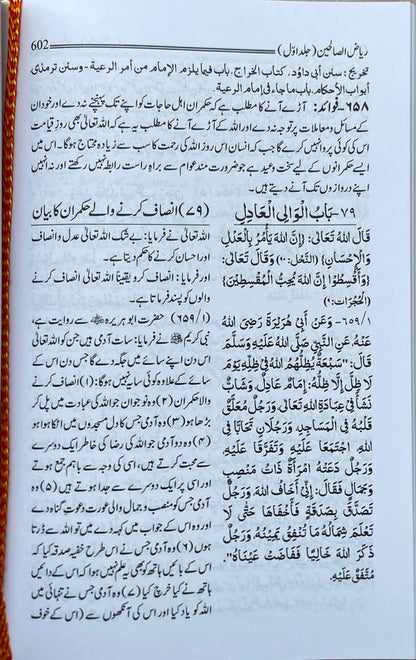 ریاض الصالحین (جلد اوّل) 602
تخریج: سنن أبی داؤد، کتاب الخراج، باب فیما یلزم الإمام من أمر الرعیة۔ وسنن ترمذی
أبواب الأحکام، باب ماجاء فی إمام الرعیة۔
۶۵۸- فوائد: آڑے آنے کا مطلب ہے کہ حکمران اہل حاجات کو اپنے تک پہنچنے نہ دے اور خود ان
کے مسائل و معاملات پر توجہ نہ دے اور اللہ کے آڑے آنے کا مطلب یہ ہے کہ اللہ تعالیٰ بھی روز قیامت
اس کی کوئی پروا نہیں کرے گا جب کہ انسان اس روز اللہ کی رحمت کا سب سے زیادہ محتاج ہوگا۔ اس میں
ایسے حکمرانوں کے لیے سخت وعید ہے جو ضرورت مند عوام سے براہ راست رابطہ نہیں رکھتے اور نہ انہیں
اپنے دروازوں تک آنے دیتے ہیں۔
۷۹- بَابُ الْوَالِی الْعَادِلِ
قَالَ اللهُ تَعَالَى: ﴿إِنَّ اللهَ يَأْمُرُ بِالْعَدْلِ
وَالْإِحْسَانِ﴾ (النَّحْل: ۹۰) وَقَالَ تَعَالَى:
﴿وَأَقْسِطُوا إِنَّ اللهَ يُحِبُّ الْمُقْسِطِينَ﴾
(الْحُجُرَات: ۹)
۶۵۹/۱- وَعَنْ أَبِي هُرَيْرَةَ رَضِيَ اللهُ
عَنْهُ، عَنِ النَّبِيِّ صَلَّى اللهُ عَلَيْهِ وَسَلَّمَ
قَالَ: "سَبْعَةٌ يُظِلُّهُمُ اللهُ فِي ظِلِّهِ يَوْمَ
لَا ظِلَّ إِلَّا ظِلُّهُ: إِمَامٌ عَادِلٌ، وَشَابٌّ
نَشَأَ فِي عِبَادَةِ اللهِ تَعَالَى، وَرَجُلٌ مُعَلَّقٌ
قَلْبُهُ فِي الْمَسَاجِدِ، وَرَجُلَانِ تَحَابَّا فِي
اللهِ، اجْتَمَعَا عَلَيْهِ وَتَفَرَّقَا عَلَيْهِ،
وَرَجُلٌ دَعَتْهُ امْرَأَةٌ ذَاتُ مَنْصِبٍ
وَجَمَالٍ، فَقَالَ: إِنِّي أَخَافُ اللهَ، وَرَجُلٌ
تَصَدَّقَ بِصَدَقَةٍ، فَأَخْفَاهَا حَتَّى لَا
تَعْلَمَ شِمَالُهُ مَا تُنْفِقُ يَمِينُهُ، وَرَجُلٌ
ذَكَرَ اللهَ خَالِيًا فَفَاضَتْ عَيْنَاهُ".
مُتَّفَقٌ عَلَيْهِ.
(۷۹) انصاف کرنے والے حکمران کا بیان
اللہ تعالیٰ نے فرمایا: بے شک اللہ تعالیٰ عدل و انصاف
اور احسان کرنے کا حکم دیتا ہے۔
اور فرمایا: انصاف کرو یقیناً اللہ تعالیٰ انصاف کرنے
والوں کو پسند فرماتا ہے۔
(۶۵۹/۱) حضرت ابو ہریرہ ؓ سے روایت ہے،
نبی کریم ﷺ نے فرمایا: سات آدمی ہیں جن کو اللہ تعالیٰ
اس دن اپنے سائے میں جگہ دے گا جس دن اس کے
سائے کے علاوہ کوئی سایہ نہیں ہوگا: (۱) انصاف کرنے
والا حکمران (۲) وہ نوجوان جو اللہ کی عبادت میں پل کر
بڑھا ہو (۳) وہ آدمی جس کا دل مسجدوں میں اٹکا ہوا ہو
(۴) وہ دو آدمی جو اللہ کی رضا کی خاطر ایک دوسرے
سے محبت کرتے ہیں، اسی کی وجہ سے باہم جمع ہوتے
اور اسی پر ایک دوسرے سے جدا ہوتے ہیں (۵) وہ
آدمی جس کو منصب و جمال والی عورت دعوت گناہ دے
اور وہ اس کے جواب میں کہہ دے میں تو اللہ سے ڈرتا
ہوں (۶) وہ آدمی جس نے اس طرح خفیہ صدقہ کیا کہ
اس کے بائیں ہاتھ کو بھی یہ علم نہیں ہوا کہ اس کے دائیں
ہاتھ نے کیا خرچ کیا (۷) وہ آدمی جس نے تنہائی میں
اللہ کو یاد کیا اور اس کی آنکھوں سے (اس کے خوف